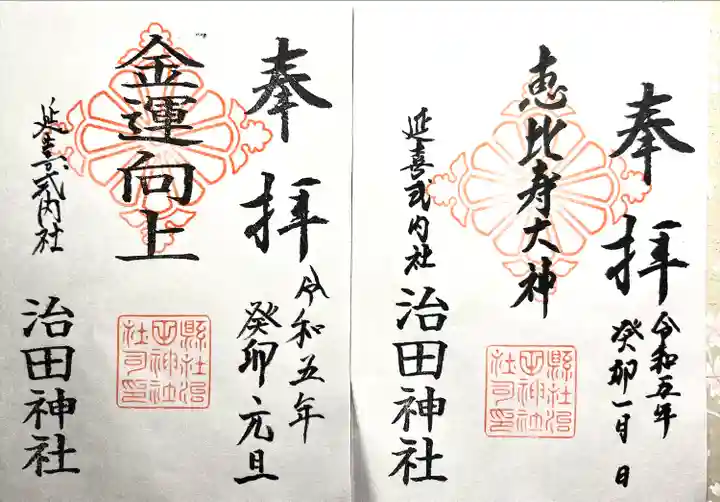 奉拝
令和五年
癸卯元旦
金運向上
縣社治
田神社
社司印
延喜式内社
治田神社
奉拝
令和五年
癸卯一月 日
恵比寿大神
縣社治
田神社
社司印
延喜式内社
治田神社